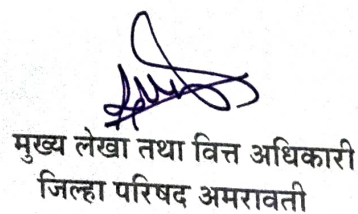 मुख्य लेखा तथा वित्त अधिकारी
जिल्हा परिषद अमरावती